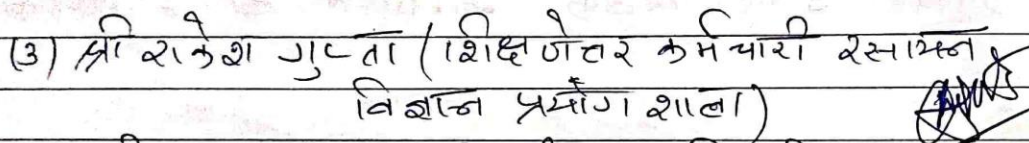 (3) श्री राकेश गुप्ता (शिक्षणेत्तर कर्मचारी रसायन
विज्ञान प्रयोग शाला)